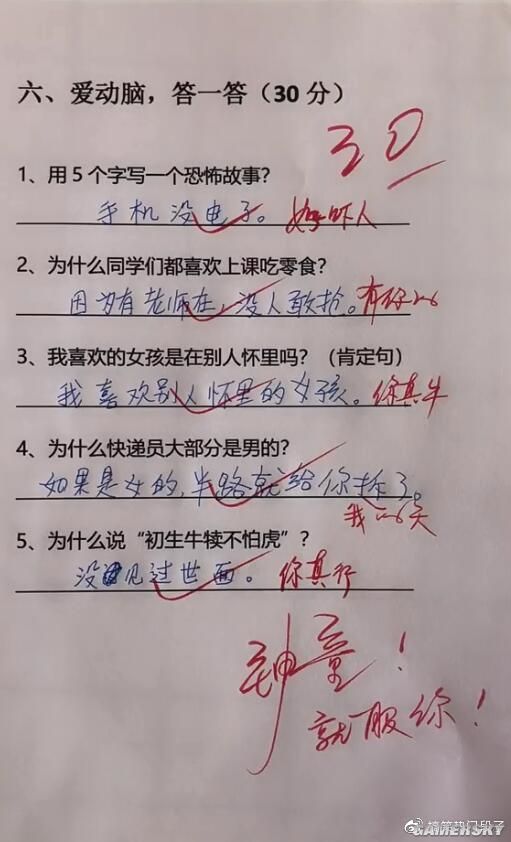 六、爱动脑，答一答（30 分）
30
1、用 5 个字写一个恐怖故事？
手机没电了。 好吓人
2、为什么同学们都喜欢上课吃零食？
因为有老师在，没人敢抢。有你的
3、我喜欢的女孩是在别人怀里吗？（肯定句）
我喜欢别人怀里的女孩。你真牛
4、为什么快递员大部分是男的？
如果是女的，半路就给你拆了。
我的天
5、为什么说“初生牛犊不怕虎”？
没见过世面。 你真行
神童！
就服你！
@搞笑热门段子
GAMERSKY